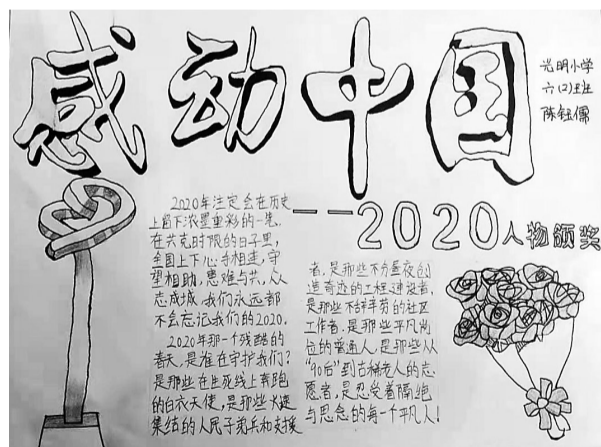 感动中国
光明小学
六(2)班
陈钰儒
——2020人物颁奖
2020年注定会在历史
上留下浓墨重彩的一笔.
在共克时限的日子里,
全国上下心手相连,守
望相助,患难与共,众
志成城,我们永远都
不会忘记我们的2020.
2020年那一个残酷的
春天,是谁在守护我们?
是那些在生死线上奔跑
的白衣天使,是那些火速
集结的人民子弟兵和支援
者,是那些不分昼夜创
造奇迹的工程建设者,
是那些不辞辛劳的社区
工作者.是那些平凡岗
位的普通人,是那些从
"90后"到古稀老人的志
愿者,是忍受着隔绝
与思念的每一个平凡人!